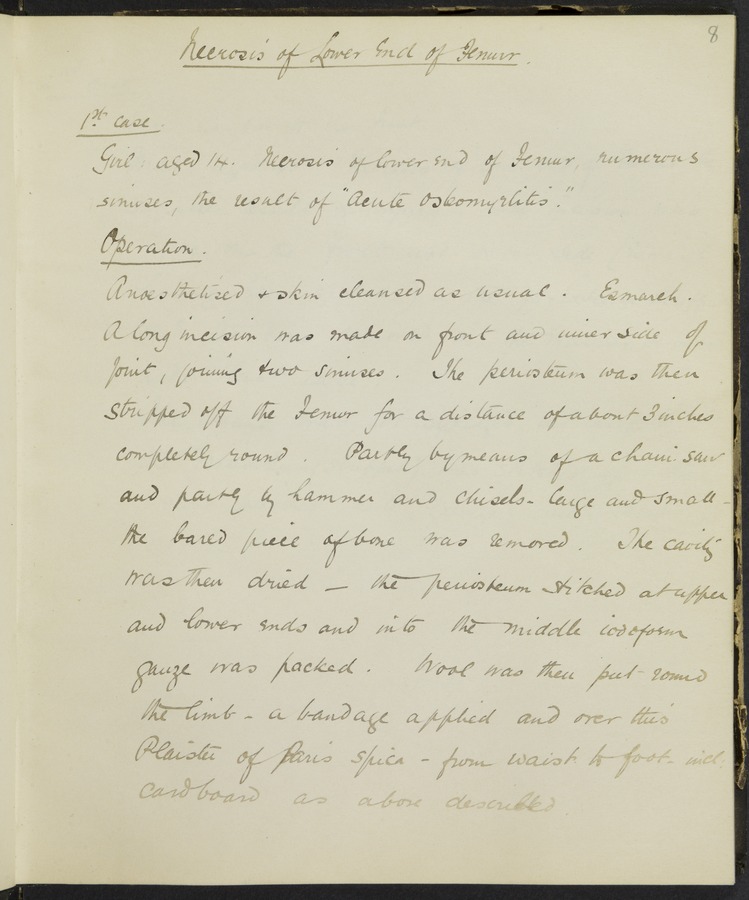 8
Necrosis of Lower End of Femur.
1st case.
Girl aged 14. Necrosis of lower end of Femur, numerous
sinuses, the result of "Acute Osteomyelitis."
Operation.
Anaesthetised + skin cleansed as usual. Esmarch.
A long incision was made on front and inner side of
joint, joining two sinuses. The periosteum was then
stripped off the Femur for a distance of about 3 inches
completely round. Partly by means of a chain saw
and partly by hammer and chisels - large and small -
the bared piece of bone was removed. The cavity
was then dried — the periosteum stitched at upper
and lower ends and into the middle iodoform
gauze was packed. Wool was then put round
the limb - a bandage applied and over this
Plaister of Paris spica - from waist to foot - incl.
cardboard as above described